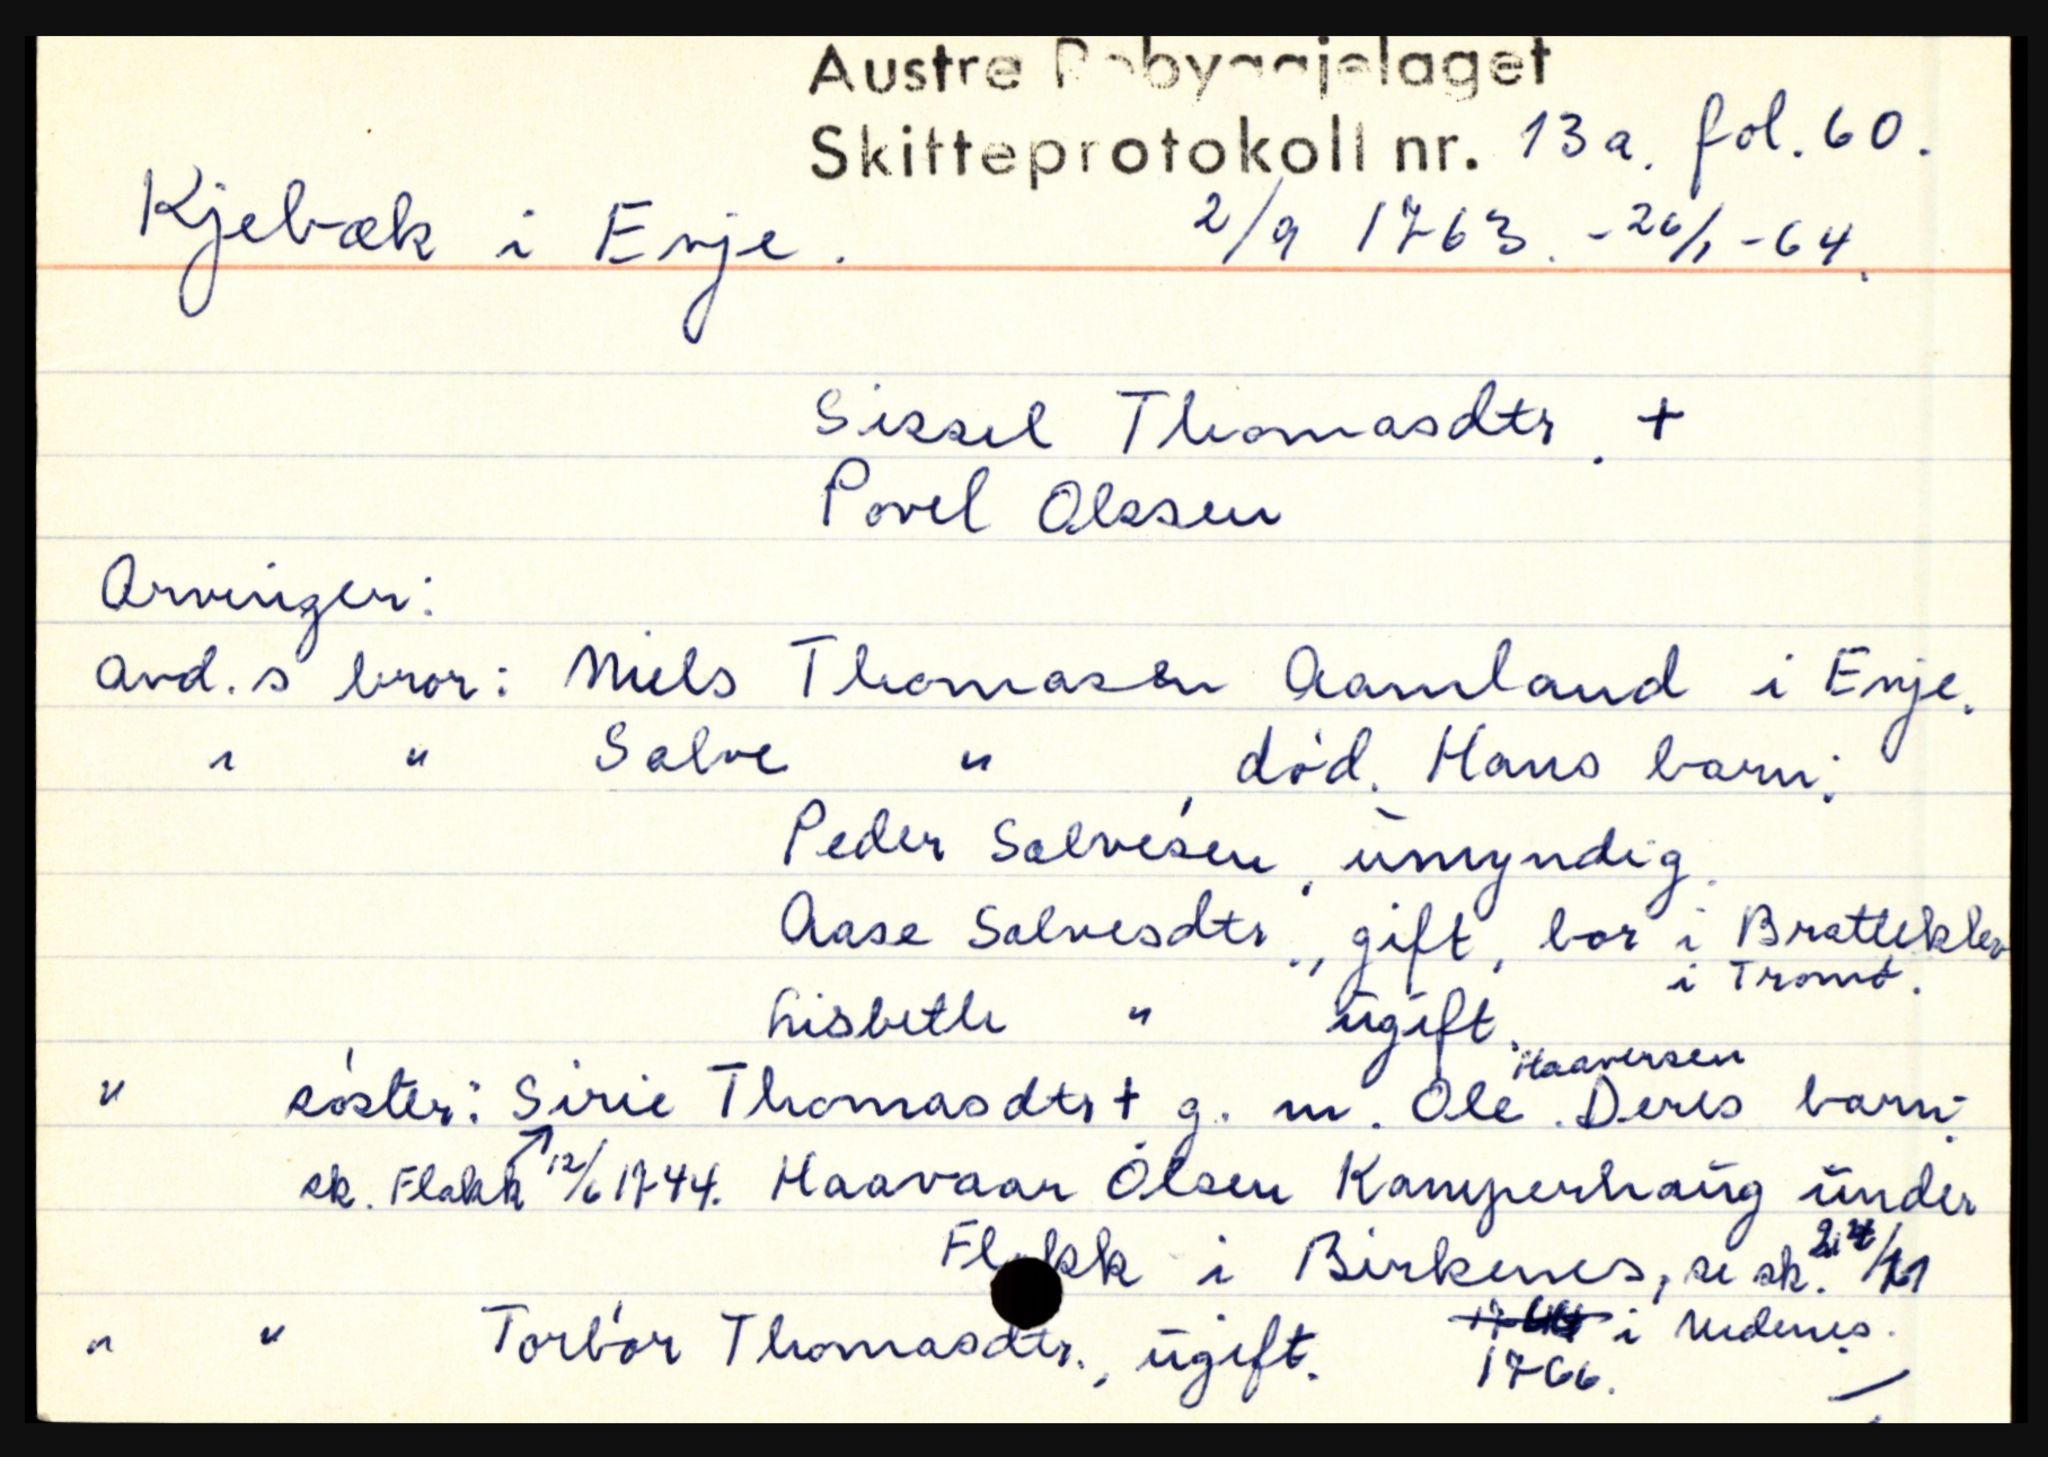 Austre Robyggjelaget
Skifteprotokoll nr. 13a. fol. 60.
Kjebæk i Evje. 2/9 1763. - 26/1 - 64.
Sissel Thomasdtr. +
Povel Olssen
Arvinger:
avd.s bror: Niels Thomasen Aamland i Evje.
" " Salve " , død. Hans barn:
Peder Salvesen, umyndig.
Aase Salvesdtr., gift, bor i Bratteklev
i Tromø.
Lisbeth " ugift.
" søster: Sirie Thomasdtr + g. m. Ole Haaversen. Deres barn:
sk. Flakk ↗ 12/6 1744. Haavaar Olsen Kamperhaug under
Flakk i Birkenes, se sk. 24/11
" " Torbor Thomasdtr., ugift. i Nedenes.
1766.